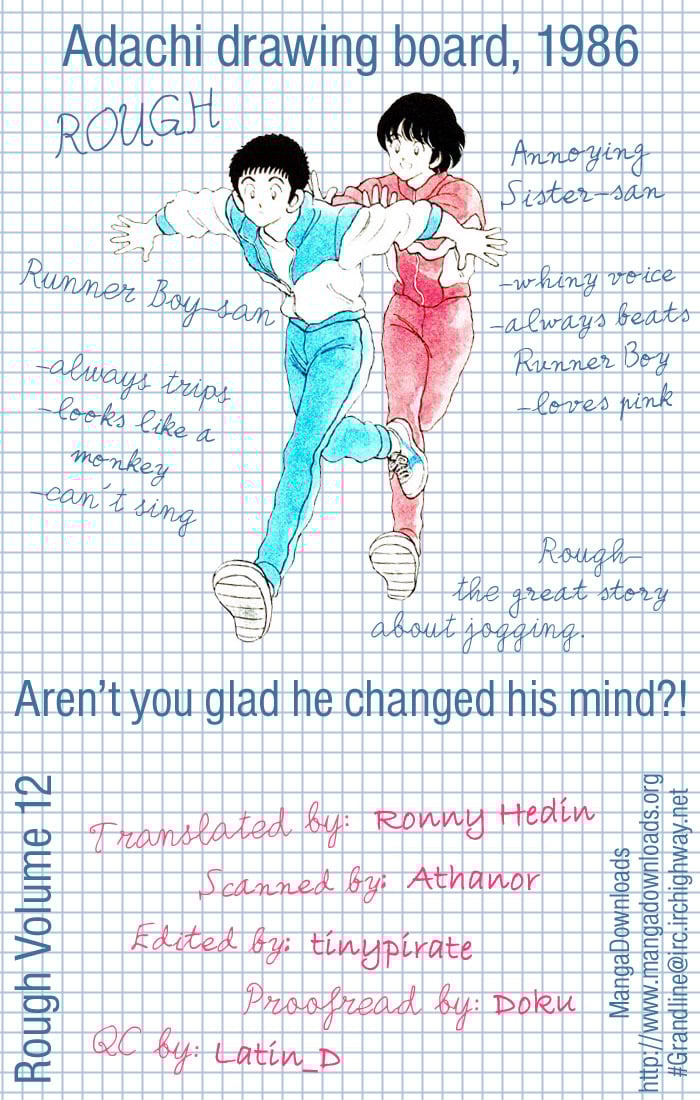 Adachi drawing board, 1986
ROUGH
Annoying
Sister-san
-whiny voice
-always beats
Runner Boy
-loves pink
Runner Boy-san
-always trips
-looks like a
monkey
-can't sing
Rough-
the great story
about jogging.
Aren't you glad he changed his mind?!
Rough Volume 12
Translated by: Ronny Hedin
Scanned by: Athanor
Edited by: tinypirate
Proofread by: Doku
QC by: Latin_D
MangaDownloads
http://www.mangadownloads.org
#Grandline@irc.irchighway.net